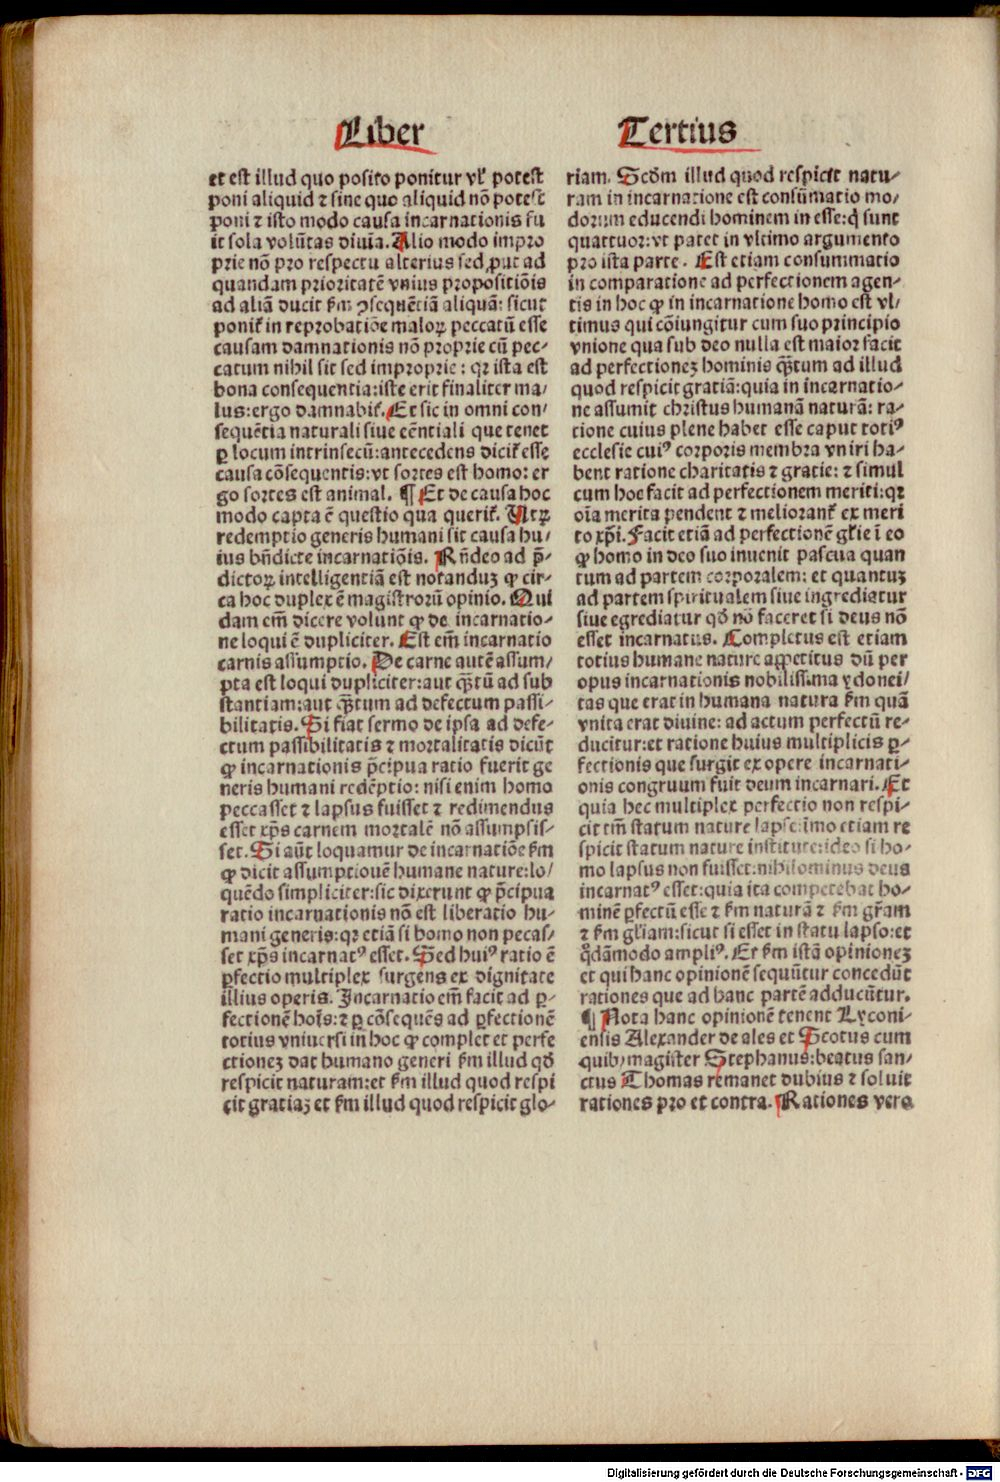 Liber Tertius
et est illud quo posito ponitur vl' potest
poni aliquid ⁊ sine quo aliquid nō potest
poni ⁊ isto modo causa incarnationis fu
it sola volūtas diuīa. Alio modo impro
prie nō pro respectu alterius sed ꝓut ad
quandam prioritatē vnius propositiōis
ad aliā ducit ẜm ꝯsequētiā aliquā: sicut
ponit̄ in reprobatiōe maloꝝ peccatū esse
causam damnationis nō proprie cū pec-
catum nihil sit sed improprie: qꝛ ista est
bona consequentia: iste erit finaliter ma/
lus: ergo damnabit̄. Et sic in omni con/
sequētia naturali siue eēntiali que tenet
ꝑ locum intrinsecū: antecedens dicit̄ esse
causa cōsequentis: vt sortes est homo: er
go sortes est animal. ¶ Et de causa hoc
modo capta ē questio qua querit̄. Utꝝ
redemptio generis humani sit causa hu/
ius bn̄dicte incarnatiōis. Rn̄deo ad p̄-
dictoꝝ intelligentiā est notanduꝫ ꝙ cir-
ca hoc duplex ē magistrorū opinio. Qui
dam em̄ dicere volunt ꝙ de incarnatio-
ne loqui ē dupliciter. Est em̄ incarnatio
carnis assumptio. De carne autē assum/
pta est loqui dupliciter: aut qꝫtū ad sub
stantiam: aut qꝫtum ad defectum passi-
bilitatis. Si fiat sermo de ipsa ad defe-
ctum passibilitatis ⁊ mortalitatis dicūt
ꝙ incarnationis p̄cipua ratio fuerit ge
neris humani redēptio: nisi enim homo
peccasset ⁊ lapsus fuisset ⁊ redimendus
esset xp̄s carnem mortalē nō assumpsis-
set. Si aūt loquamur de incarnatiōe ẜm
ꝙ dicit assumptiouē humane nature: lo/
quēdo simpliciter: sic dixerunt ꝙ p̄cipua
ratio incarnationis nō est liberatio hu-
mani generis: qꝛ etiā si homo non pecas-
set xp̄s incarnatꝰ esset. Sed huiꝰ ratio ē
ꝑfectio multiplex surgens ex dignitate
illius operis. Incarnatio em̄ facit ad ꝑ-
fectionē hoīs: ⁊ ꝑ cōsequēs ad ꝑfectionē
totius vniuersi in hoc ꝙ complet et perfe
ctionez dat humano generi ẜm illud qd̄
respicit naturam: et ẜm illud quod respi
cit gratiaꝫ et ẜm illud quod respicit glo-
riam. Scd̄m illud quod respicit natu/
ram in incarnatione est consūmatio mo/
dorum educendi hominem in esse: q̄ sunt
quattuor: vt patet in vltimo argumento
pro ista parte. Est etiam consummatio
in comparatione ad perfectionem agen-
tis in hoc ꝙ in incarnatione homo est vl/
timus qui cōiungitur cum suo principio
vnione qua sub deo nulla est maior facit
ad perfectionez hominis qꝫtum ad illud
quod respicit gratiā: quia in incarnatio-
ne assumit christus humanā naturā: ra-
tione cuius plene habet esse caput totiꝰ
ecclesie cuiꝰ corporis membra vniri ha-
bent ratione charitatis ⁊ gratie: ⁊ simul
cum hoc facit ad perfectionem meriti: qꝛ
oīa merita pendent ⁊ meliorant̄ ex meri
to xp̄i. Facit etiā ad perfectionē gl'ie ī eo
ꝙ homo in deo suo inuenit pascua quan
tum ad partem corporalem: et quantuꝫ
ad partem spiritualem siue ingrediatur
siue egrediatur qd̄ nō faceret si deus nō
esset incarnatus. Completus est etiam
totius humane nature appetitus dū per
opus incarnationis nobilissima ydonei/
tas que erat in humana natura ẜm quā
vnita erat diuine: ad actum perfectū re-
ducitur: et ratione huius multiplicis ꝑ-
fectionis que surgit ex opere incarnati-
onis congruum fuit deum incarnari. Et
quia hec multiplex perfectio non respi-
cit tm̄ statum nature lapse: īmo etiam re
spicit statum nature institute: ideo si ho-
mo lapsus non fuisset: nihilominus deus
incarnatꝰ esset: quia ita competebat ho-
minē ꝑfectū esse ⁊ ẜm naturā ⁊ ẜm gr̄am
⁊ ẜm gl'iam: sicut si esset in statu lapso: et
q̄dāmodo ampliꝰ. Et ẜm istā opinionez
et qui hanc opinionē sequūtur concedūt
rationes que ad hanc partē adducūtur.
¶ Nota hanc opinionē tenent Lyconi-
ensis Alexander de ales et Scotus cum
quibꝫ magister Stephanus: beatus san-
ctus Thomas remanet dubius ⁊ soluit
rationes pro et contra. Rationes vero
Digitalisierung gefördert durch die Deutsche Forschungsgemeinschaft - DFG